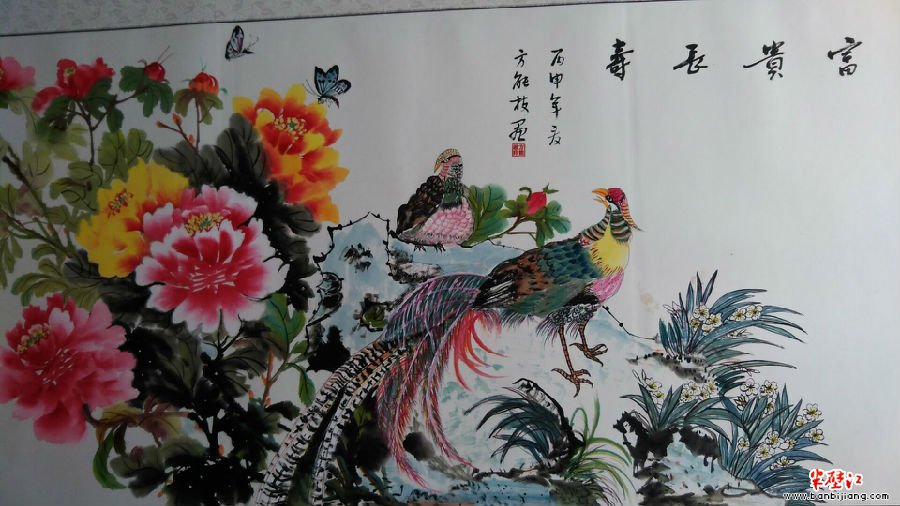 富貴長壽
丙申年夏
方能枝画
半壁江
www.banbijiang.com